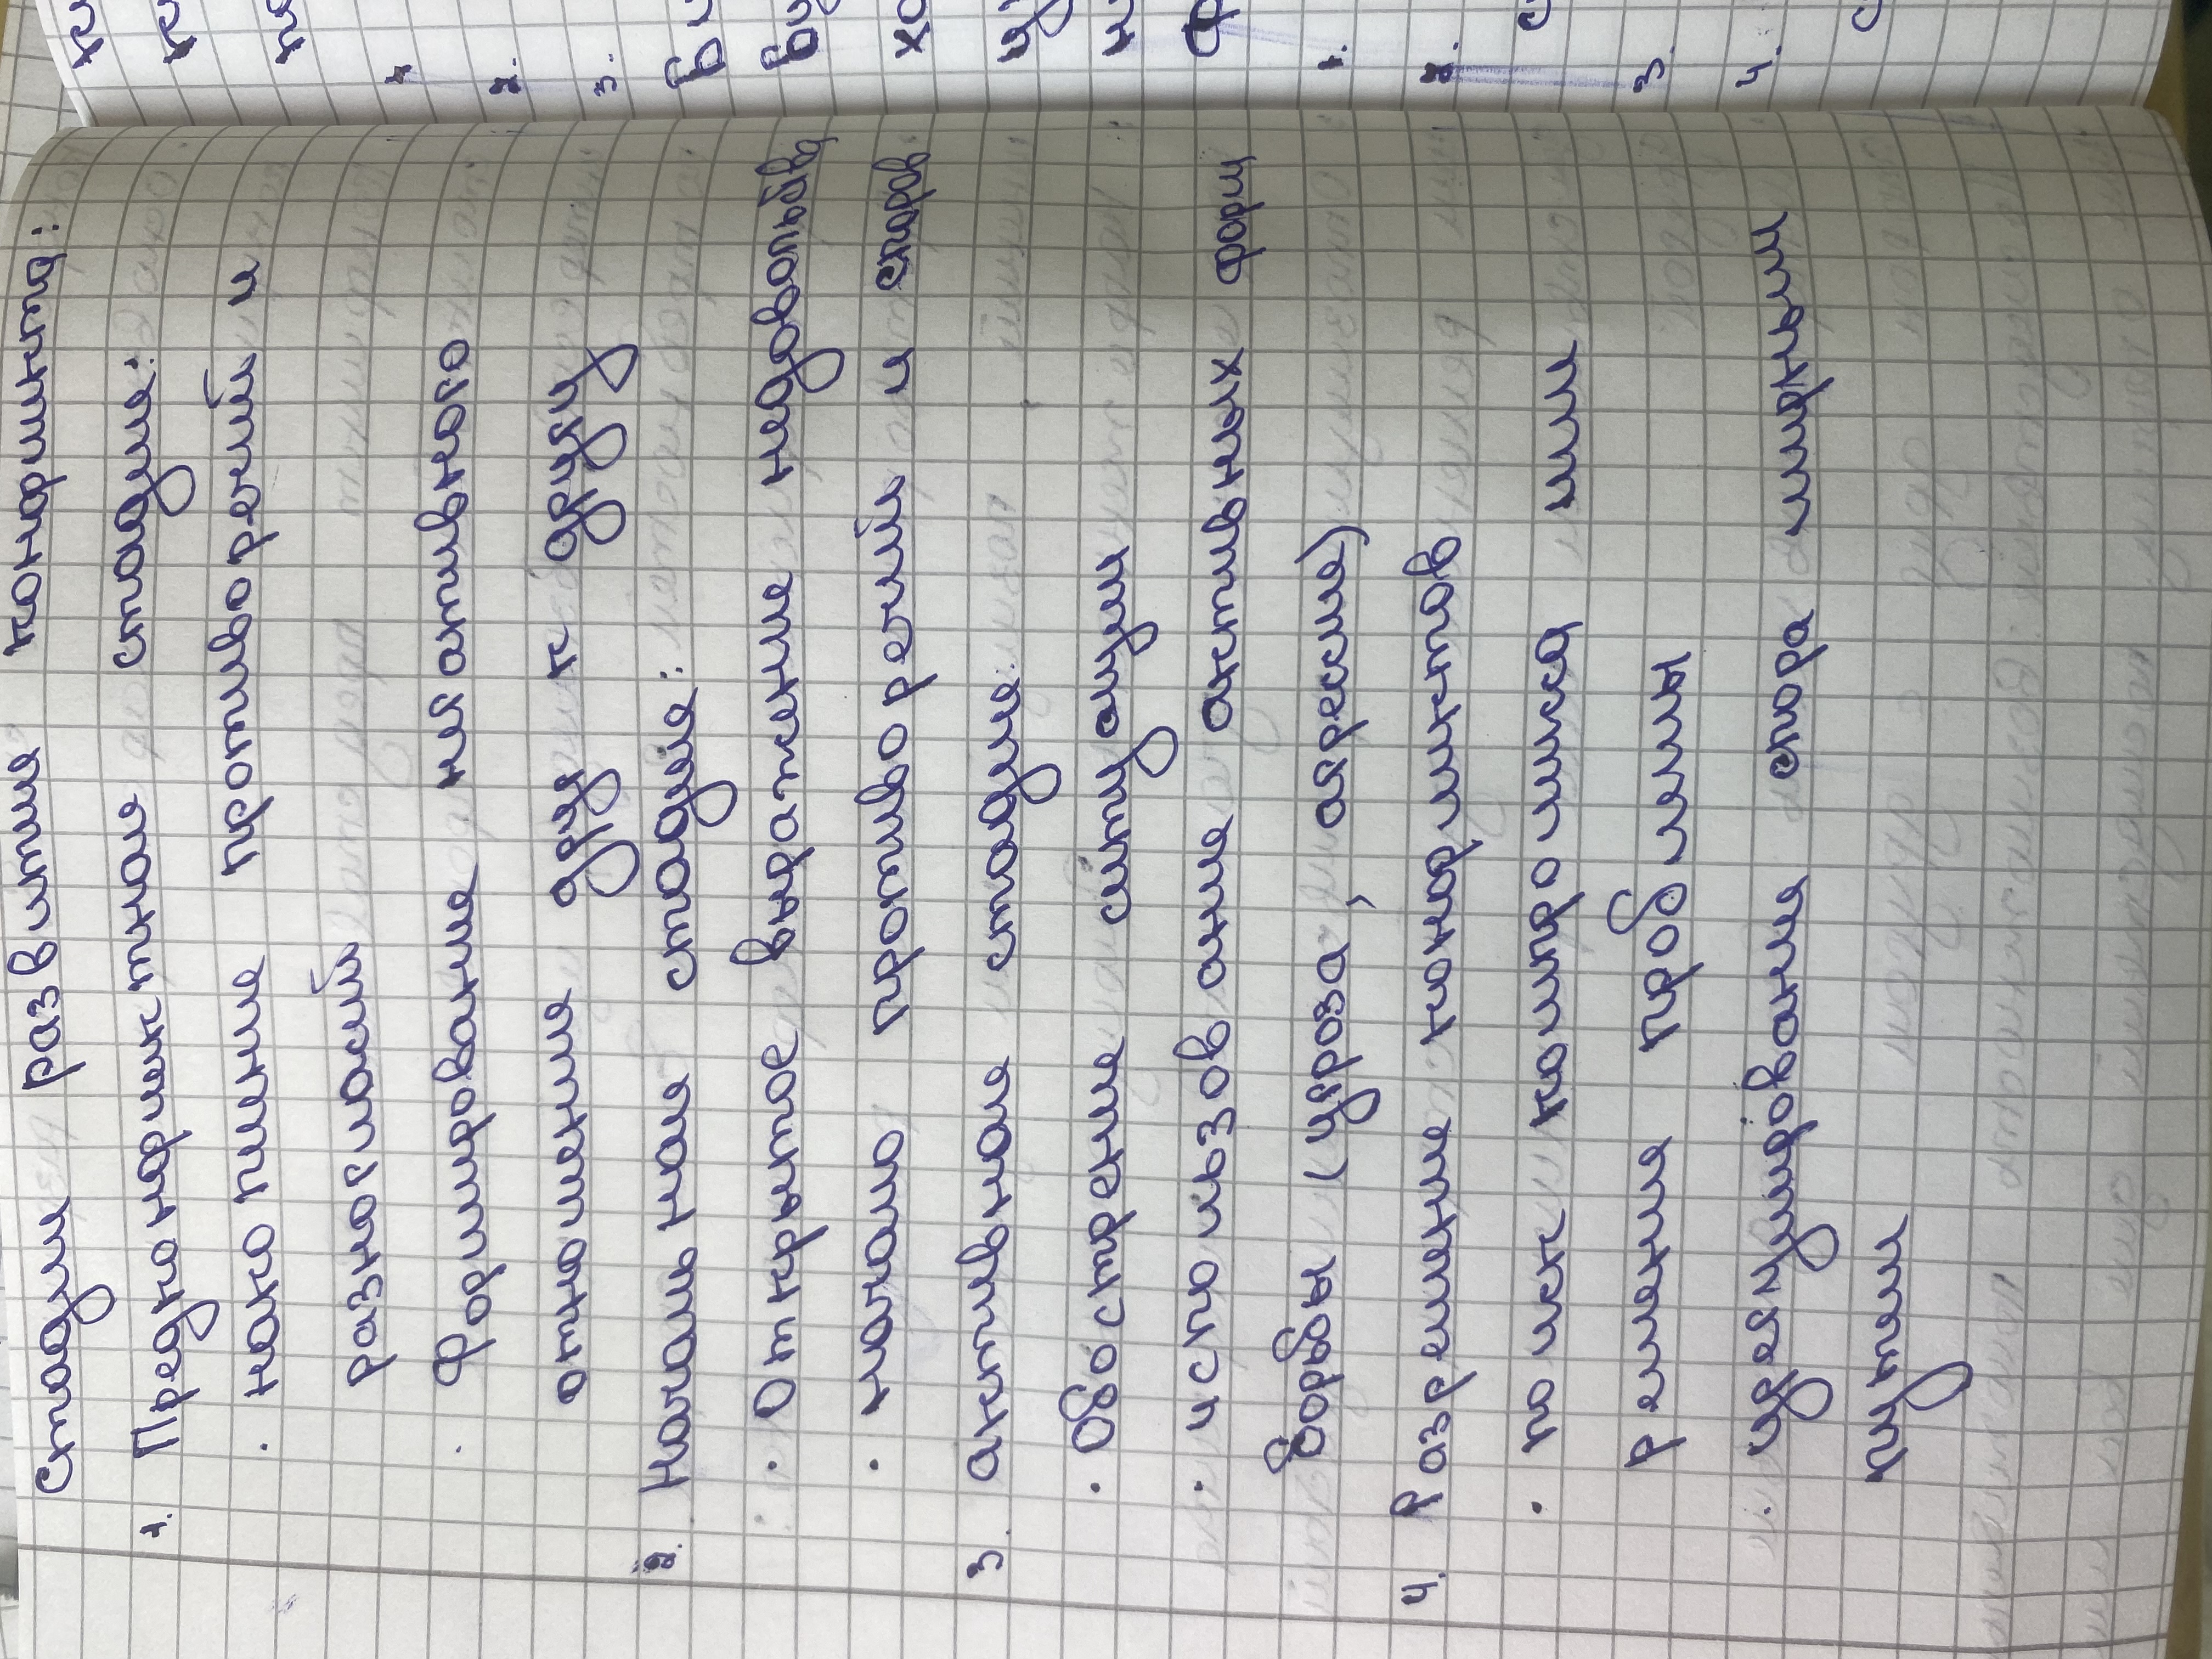 Стадии развития конфликта:
1. Предконфликтная стадия:
· накопление противоречий и
разногласий
· Формирование негативного
отношения друг к другу
2. Начальная стадия:
· Открытое выражение недовольства
· начало противоречий и споров
3. активная стадия:
· Обострение ситуации
· использование активных форм
борьбы (угроза, агрессия)
4. Разрешение конфликтов
· поиск компромисса или
решения проблемы
· урегулирование спора мирным
путем
1.
2.
3.
1.
2.
3.
4.